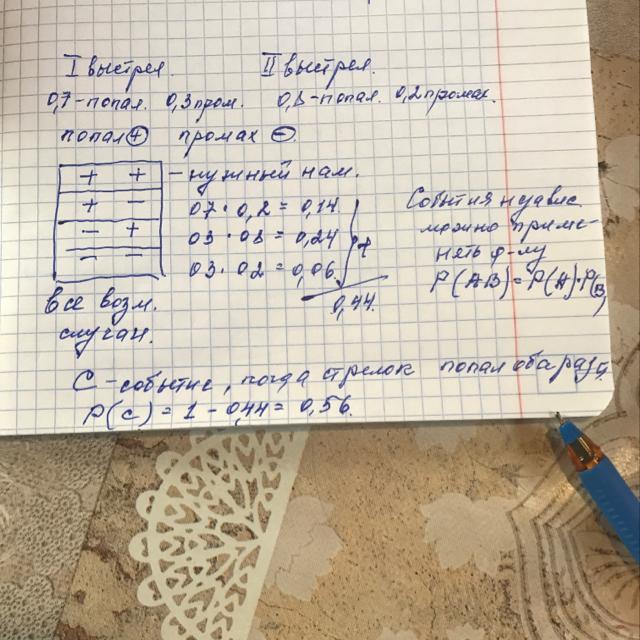 I выстрел. II выстрел.
0,7-попал. 0,3 пром. 0,8-попал. 0,2 промах.
попал ⊕ промах ⊖.
+ + - нужный нам.
+ - 0,7 · 0,2 = 0,14
- + 03 · 08 = 0,24
- - 03 · 02 = 0,06
+
0,44.
Все возм.
случаи.
События независ
можно приме-
нять ф-лу
P(AB) = P(A)·P(B)
C - событие, когда стрелок попал оба раза.
P(C) = 1 - 0,44 = 0,56.